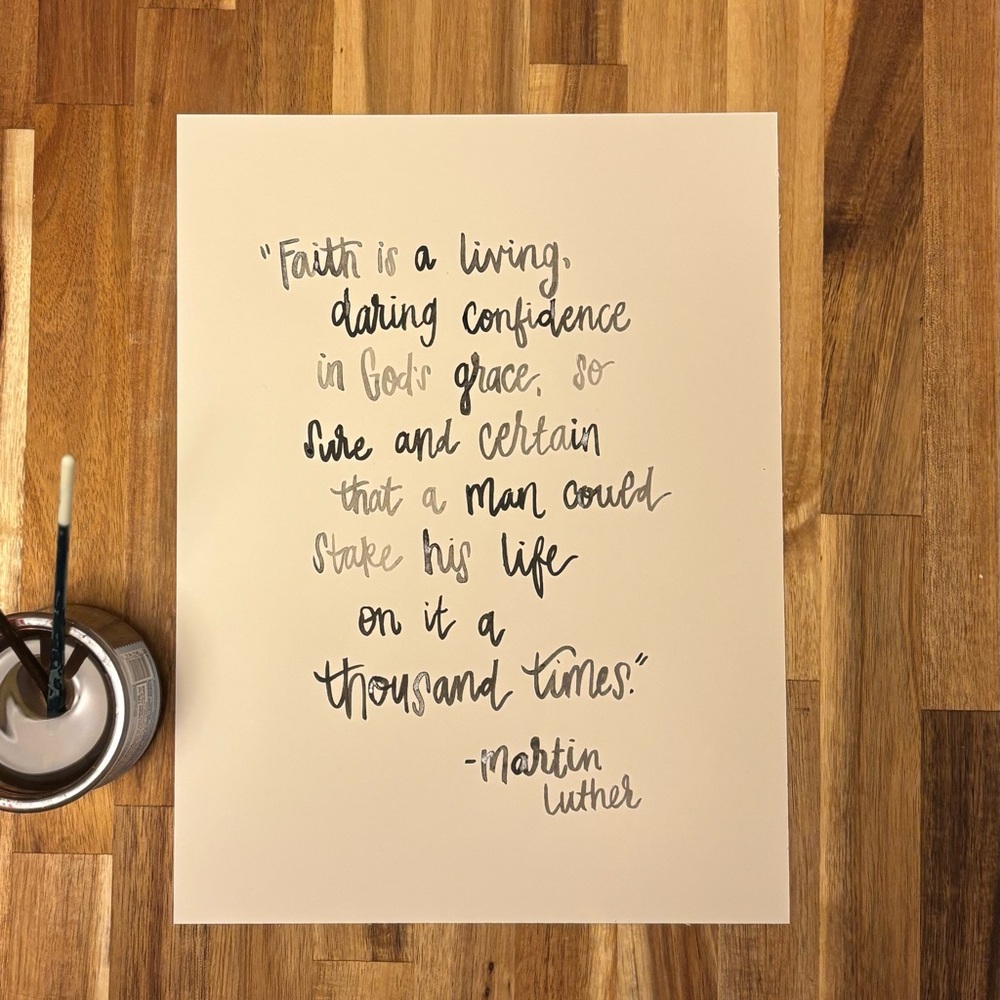 "Faith is a living,
daring confidence
in God's grace, so
sure and certain
that a man could
stake his life
on it a
thousand times."
-Martin
Luther